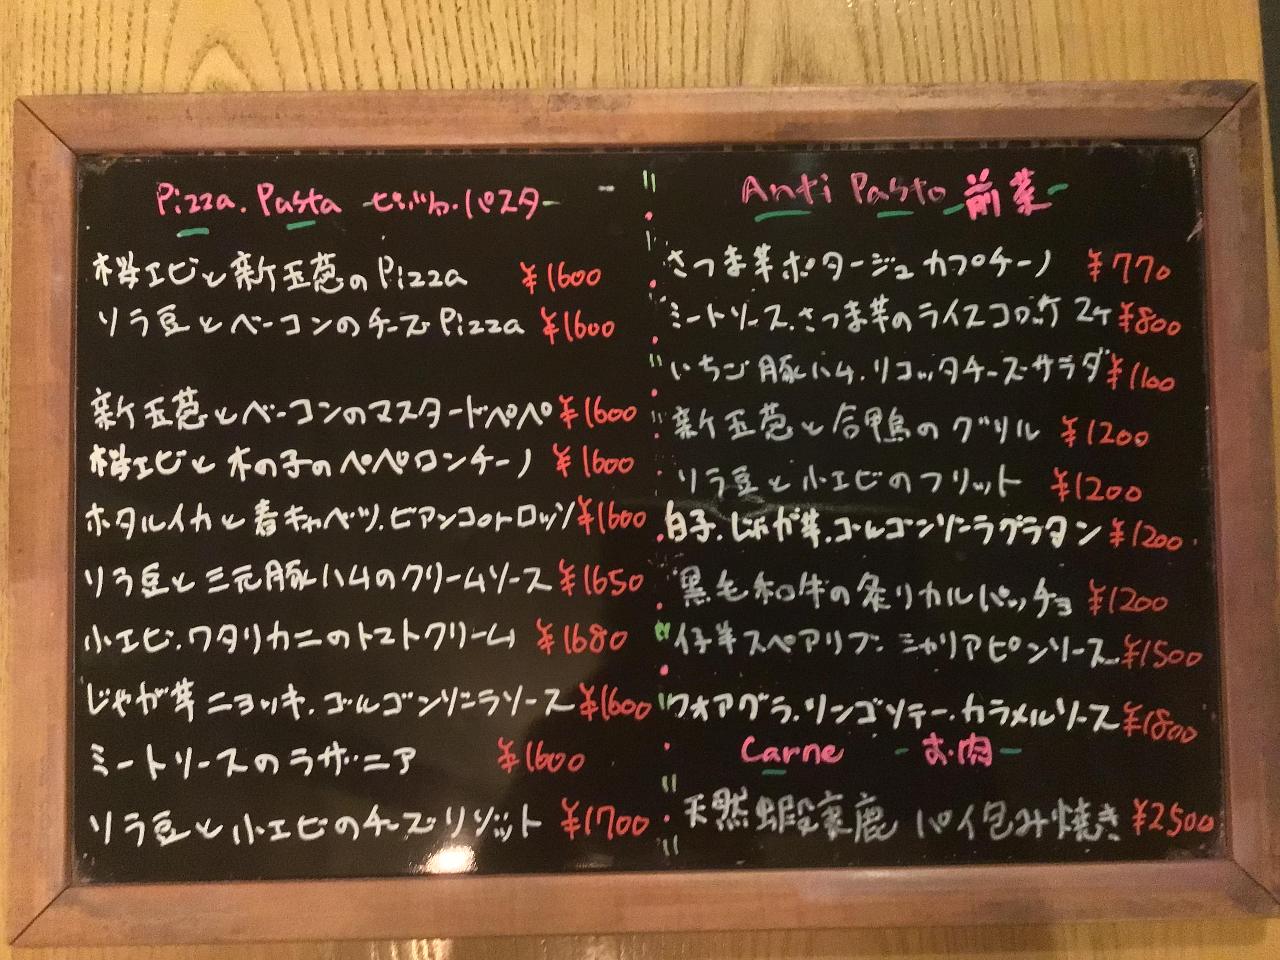 Pizza. Pasta -ピッツァ・パスタ-
桜エビと新玉葱のPizza ¥1600
ソラ豆とベーコンのチーズPizza ¥1600
新玉葱とベーコンのマスタードペペ ¥1600
桜エビと木の子のペペロンチーノ ¥1600
ホタルイカと春キャベツ.ビアンコのトロッソ ¥1600
ソラ豆と三元豚ハムのクリームソース ¥1650
小エビ.ワタリカニのトマトクリーム ¥1680
じゃが芋ニョッキ.ゴルゴンゾーラソース ¥1600
ミートソースのラザニア ¥1600
ソラ豆と小エビのチーズリゾット ¥1700
Anti Pasto -前菜-
さつま芋ポタージュカプチーノ ¥770
ミートソース.さつま芋のライスコロッケ 2ケ ¥800
いちご豚ハム.リコッタチーズサラダ ¥1100
新玉葱と合鴨のグリル ¥1200
ソラ豆と小エビのフリット ¥1200
白子.じゃが芋.ゴルゴンゾーラグラタン ¥1200
黒毛和牛の炙りカルパッチョ ¥1200
仔羊スペアリブ.シャリアピンソース ¥1500
フォアグラ.リンゴソテー.カラメルソース ¥1800
Carne -お肉-
天然蝦夷鹿 パイ包み焼き ¥2500